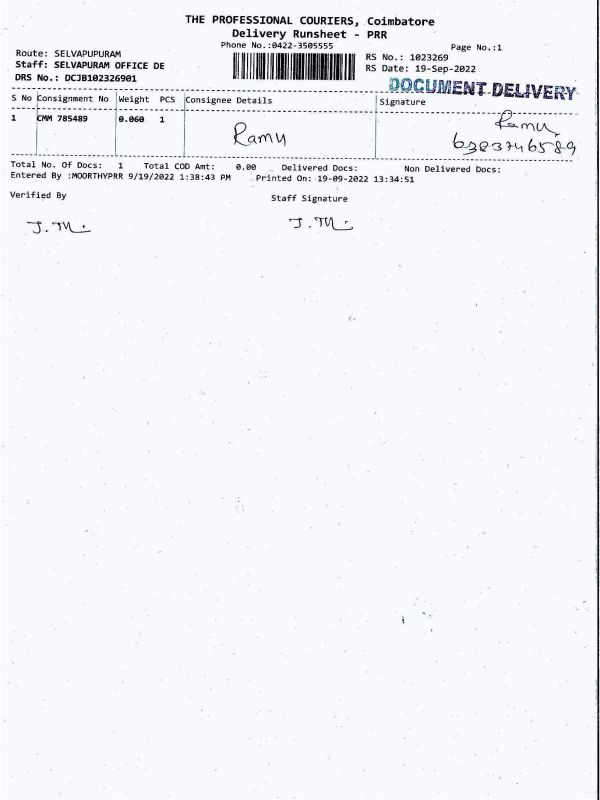 THE PROFESSIONAL COURIERS, Coimbatore
Delivery Runsheet - PRR
Phone No.:0422-3505555 Page No.:1
Route: SELVAPUPURAM RS No.: 1023269
Staff: SELVAPURAM OFFICE DE RS Date: 19-Sep-2022
DRS No.: DCJB102326901
DOCUMENT DELIVERY
S No Consignment No Weight PCS Consignee Details Signature
1 CMM 785489 0.060 1 Ramu Ramu
6383746589
Total No. Of Docs: 1 Total COD Amt: 0.00 Delivered Docs: Non Delivered Docs:
Entered By :MOORTHYPRR 9/19/2022 1:38:43 PM Printed On: 19-09-2022 13:34:51
Verified By Staff Signature
J. M. J. M.